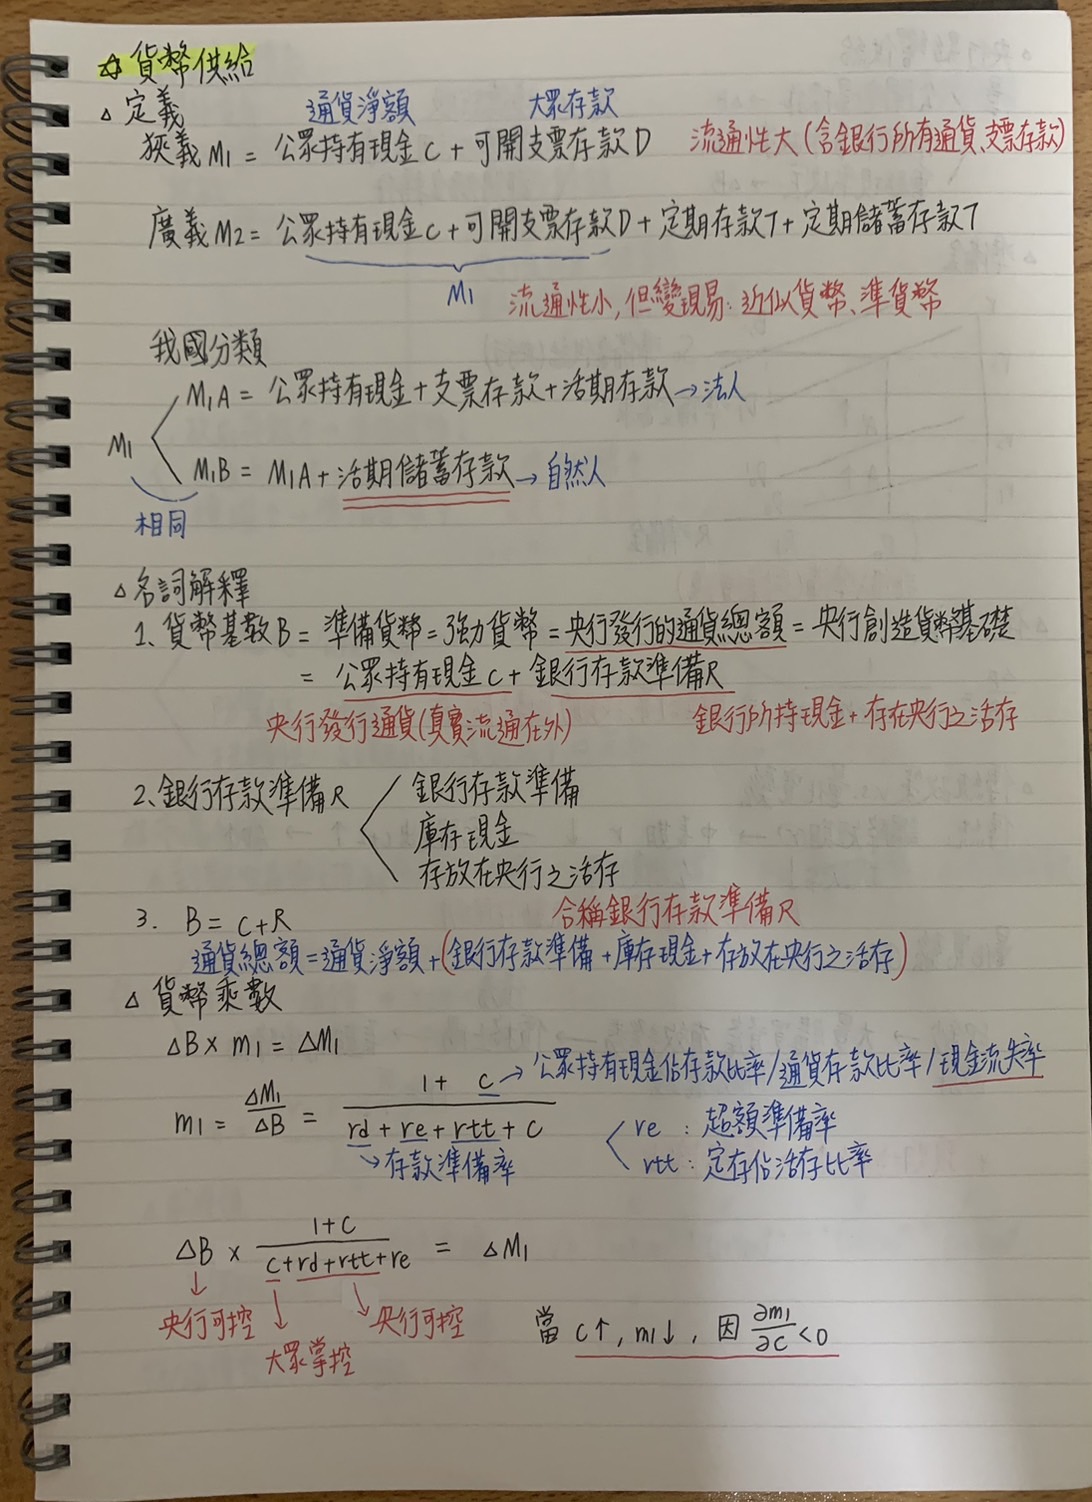 ☆ 貨幣供給
△ 定義 通貨淨額 大眾存款
狹義 M1 = 公眾持有現金 C + 可開支票存款 D 流通性大 (含銀行所有通貨、支票存款)
廣義 M2 = 公眾持有現金 C + 可開支票存款 D + 定期存款 T + 定期儲蓄存款 T
M1 流通性小, 但變現易: 近似貨幣、準貨幣
我國分類
M1A = 公眾持有現金 + 支票存款 + 活期存款 → 法人
M1
M1B = M1A + 活期儲蓄存款 → 自然人
相同
△ 名詞解釋
1、貨幣基數 B = 準備貨幣 = 強力貨幣 = 央行發行的通貨總額 = 央行創造貨幣基礎
= 公眾持有現金 C + 銀行存款準備 R
央行發行通貨 (真實流通在外) 銀行所持現金 + 存在央行之活存
2、銀行存款準備 R 銀行存款準備
庫存現金
存放在央行之活存
3. B = C + R 合稱銀行存款準備 R
通貨總額 = 通貨淨額 + (銀行存款準備 + 庫存現金 + 存放在央行之活存)
△ 貨幣乘數
△B × m1 = △M1
m1 = △M1/△B = (1 + c)/(rd + re + rtt + c) → 公眾持有現金佔存款比率/通貨存款比率/現金流失率
→ 存款準備率
re : 超額準備率
rtt : 定存佔活存比率
△B × (1+c)/(c+rd+rtt+re) = △M1
央行可控 大眾掌控 央行可控
當 c↑, m1↓, 因 ∂m1/∂c < 0